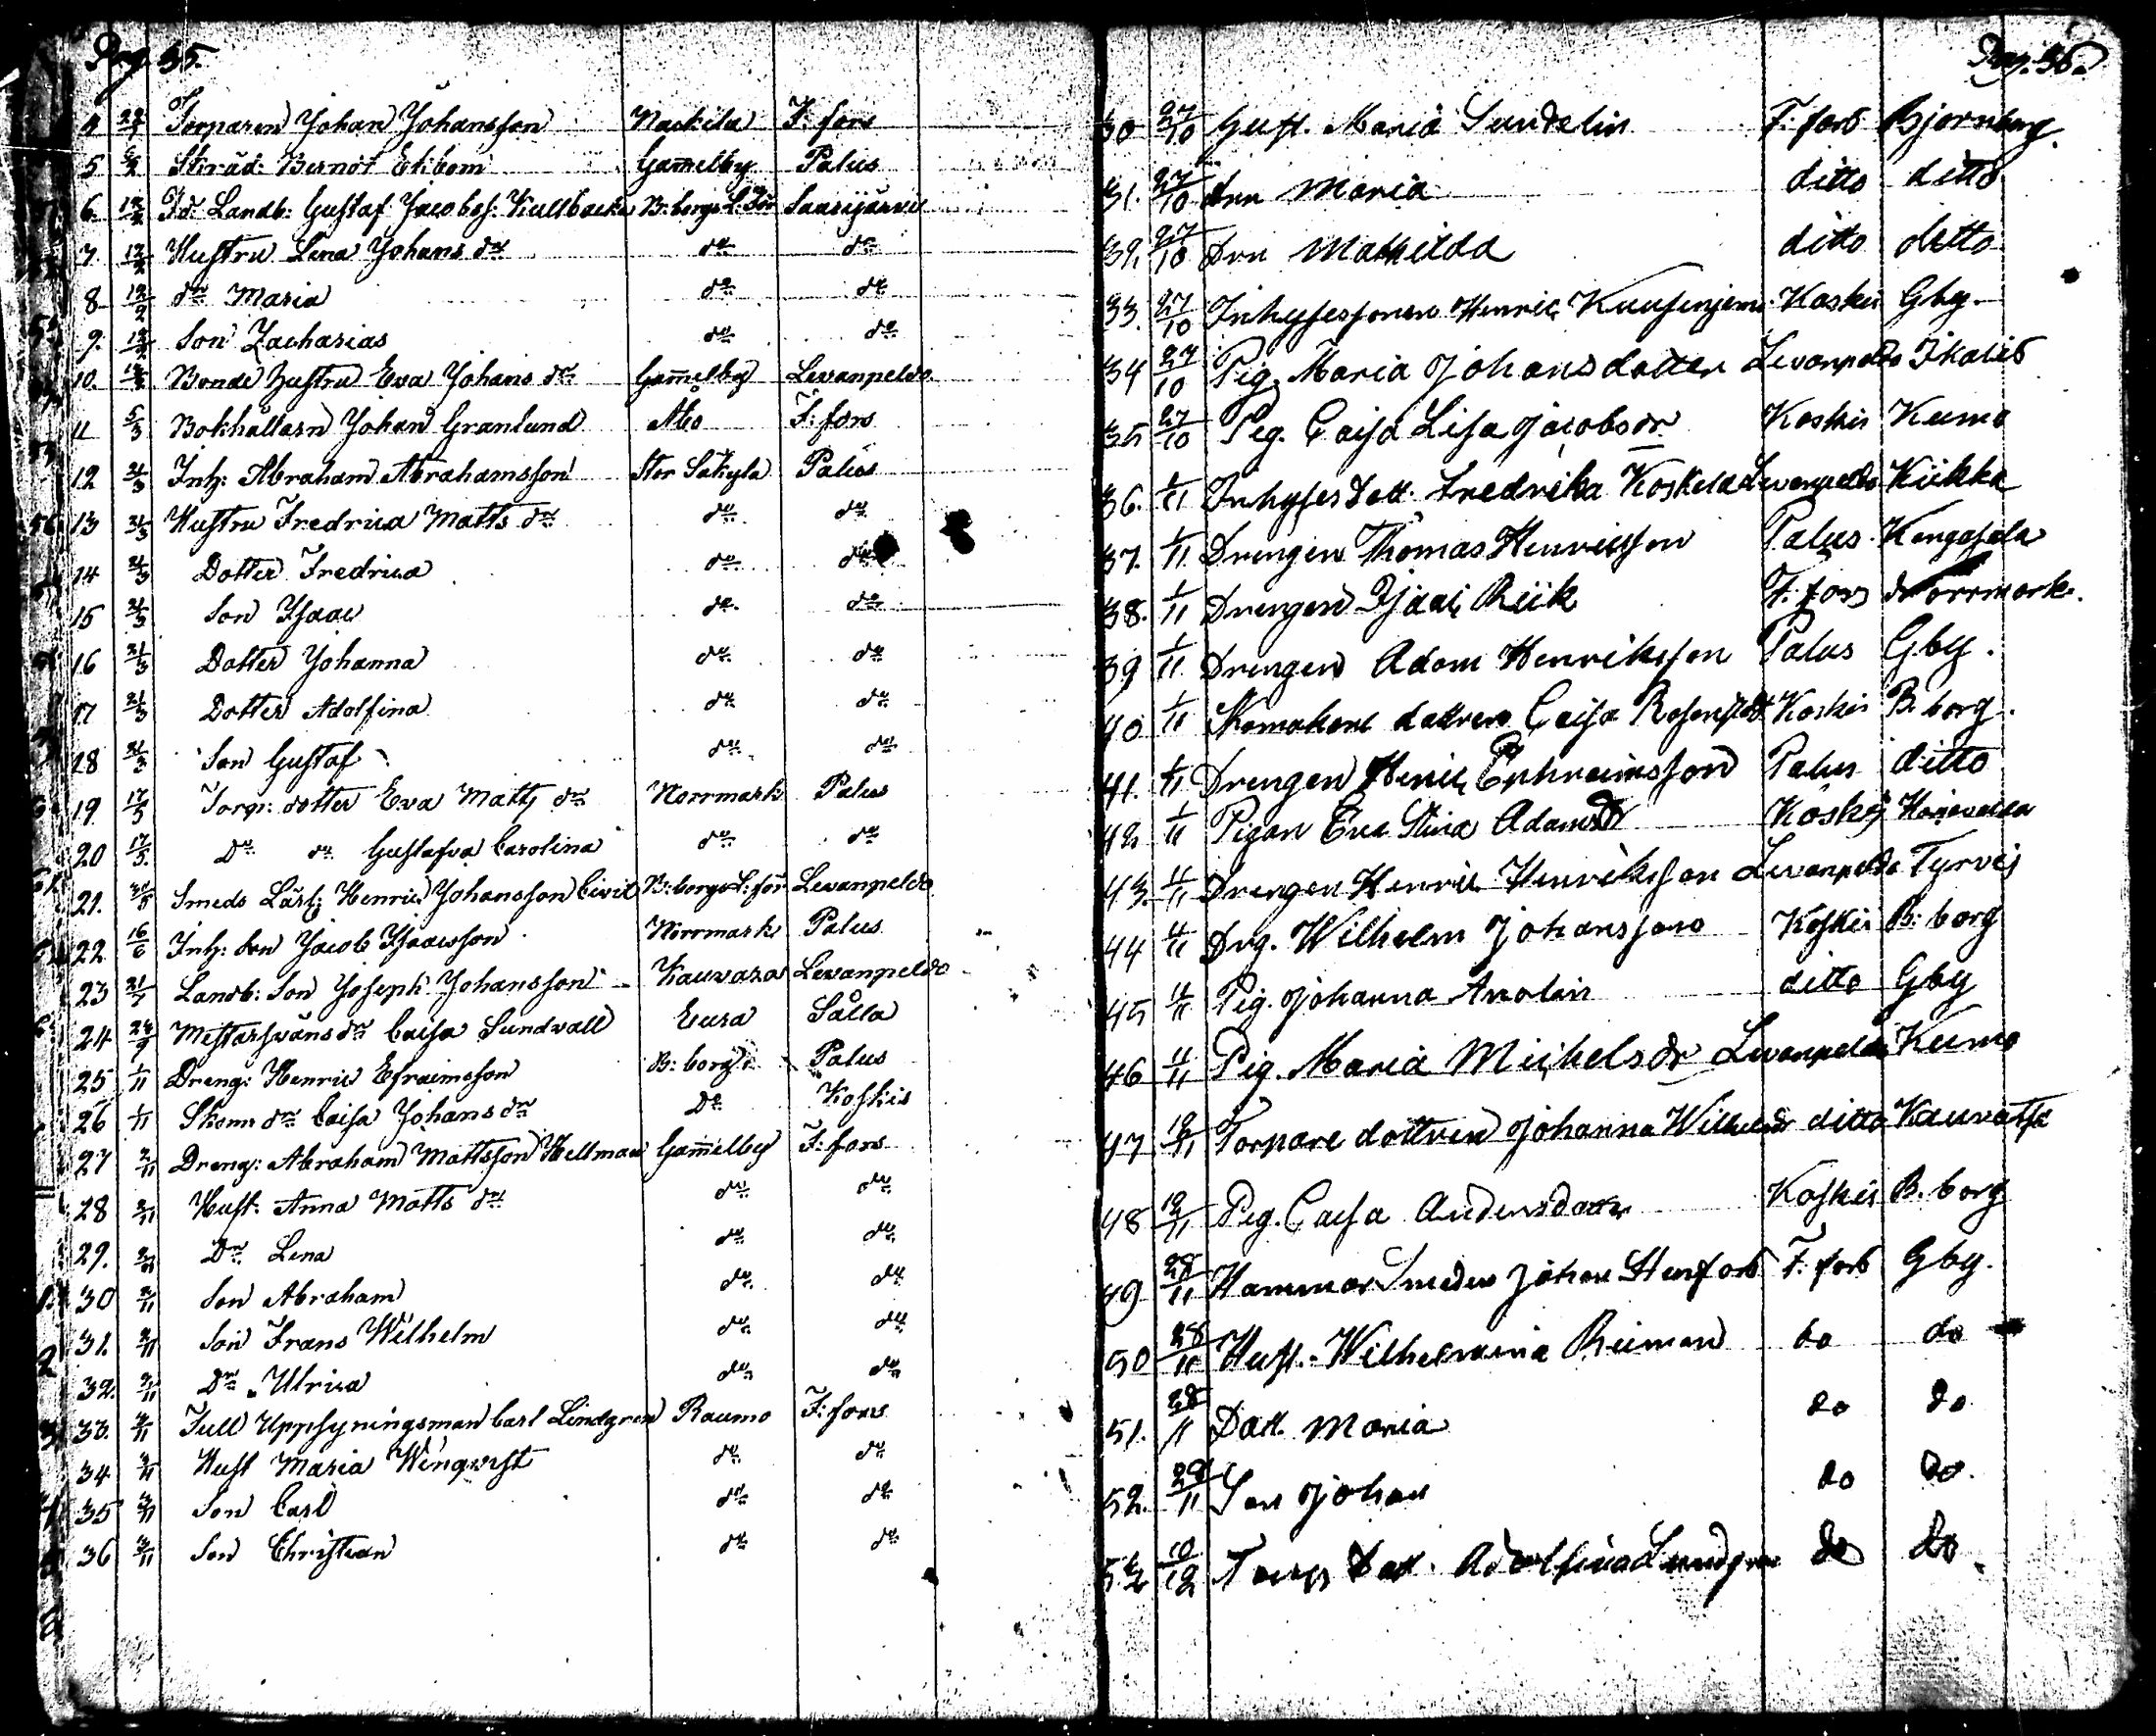 Pag. 35.
4 22/1 Torparen Johan Johansson Nackila F: fors
5 5/2 Skräd: Berndt Ekbom Gam̄elby Palus
6. 12/2 Fd. Landb: Gustaf Jacobss. Kullbacka B:borgs L:för Saarijärvi
7. 12/2 Hustru Lena Johans dr do do
8 12/2 dr Maria do do
9. 12/2 Son Zacharias do do
10. Bonde hustru Eva Johans dr Gam̄elby Levanpeldo
11 5/3 Bokhållarn Johan Granlund Åbo F: fors
12 21/3 Inh: Abraham Abrahamsson Stor Säkyla Palus
13 21/3 Hustru Fredrica Matts dr do do
14 21/3 Dotter Fredrica do do
15 21/3 Son Isaac do do
16 21/3 Dotter Johanna do do
17 21/3 Dotter Adolfina do do
18 21/3 Son Gustaf do do
19. 17/5 Torp: dotter Eva Matts dr Norrmark Palus
20 17/5. Dr do Gustafva Carolina do do
21. Smeds Lärl: Henric Johansson Civil B:borgs L:för Levanpeldo
22 16/6 Inh: Son Jacob Isaacsson Norrmark Palus
23 21/7 Landb: Son Joseph Johansson Kauvaza Levanpeldo
24 24/9 Mästarsvans dr Caisa Sundvall Eura Sålla
25 1/11 Dreng: Henric Efraimsson B: borg Palus
26 1/11 Skom dr Caisa Johans dr Do Koskis
27 2/11 Dreng: Abraham Mattsson Hellman Gam̄elby F: fors
28 2/11 Hust. Anna Matts dr do do
29. 2/11 Dr Lena do do
30 2/11 Son Abraham do do
31. 2/11 Son Frans Wilhelm do do
32. 2/11 Dr Ulrica do do
33. 2/11 Tull Uppsyningsman Carl Lindgren Raumo F: fors
34 2/11 Hust Maria Wengvist do do
35 2/11 Son Carl do do
36 2/11 Son Christian do do
Pag. 36.
30 27/10 Hust. Maria Sundelin F. fors Bjorneborg
31. 27/10 Drn Maria ditto ditto
32. 27/10 Drn Mathilda ditto ditto
33. 27/10 Inhysessonen Henric Kuusinjemi Koskis Gby.
34 27/10 Pig. Maria Johansdotter Levanpeldo Ikalis
35 27/10 Pig. Caisa Lisa Jacobsdr Koskis Kumo
36. 1/11 Inhyses Dott. Fredrika Koskela Levanpeldo Kiikka
37. 1/11 Drengen Thomas Henricsson Palus Kangasala
38. 1/11 Drengen Isaac Riik F. fors Norrmark.
39 1/11 Drengen Adam Henriksson Palus Gby.
40 1/11 Skomakare dottren Caisa Rosenstedt Koskis B. borg.
41. 1/11 Drengen Henric Ephraimsson Palus ditto
42. 1/11 Pigan Eva Stina Adamsdr Koskis
43. 11/11 Drengen Henric Henriksson Levanpeldo Tyrvis
44 11/11 Drg. Wilhelm Johansson Koskis B: borg
45 11/11 Pig. Johanna Anolin ditto Gby
46 11/11 Pig. Maria Michelsdr Levanpeldo Kumo
47 12/11 Torpare dottren Johanna Wilhelmsdr ditto Kauvatsa
48 12/11 Pig. Caisa Andersdotter Koskis B. borg
49 28/11 Hammar Smeden Johan Stenfors F. fors Gby.
50 28/11 Hust. Wilhelmina Riiman do do
51. 28/11 Dott. Maria do do
52. 28/11 Son Johan do Do.
53. 10/12 Torps Dott. Adolfina Lundgren do do